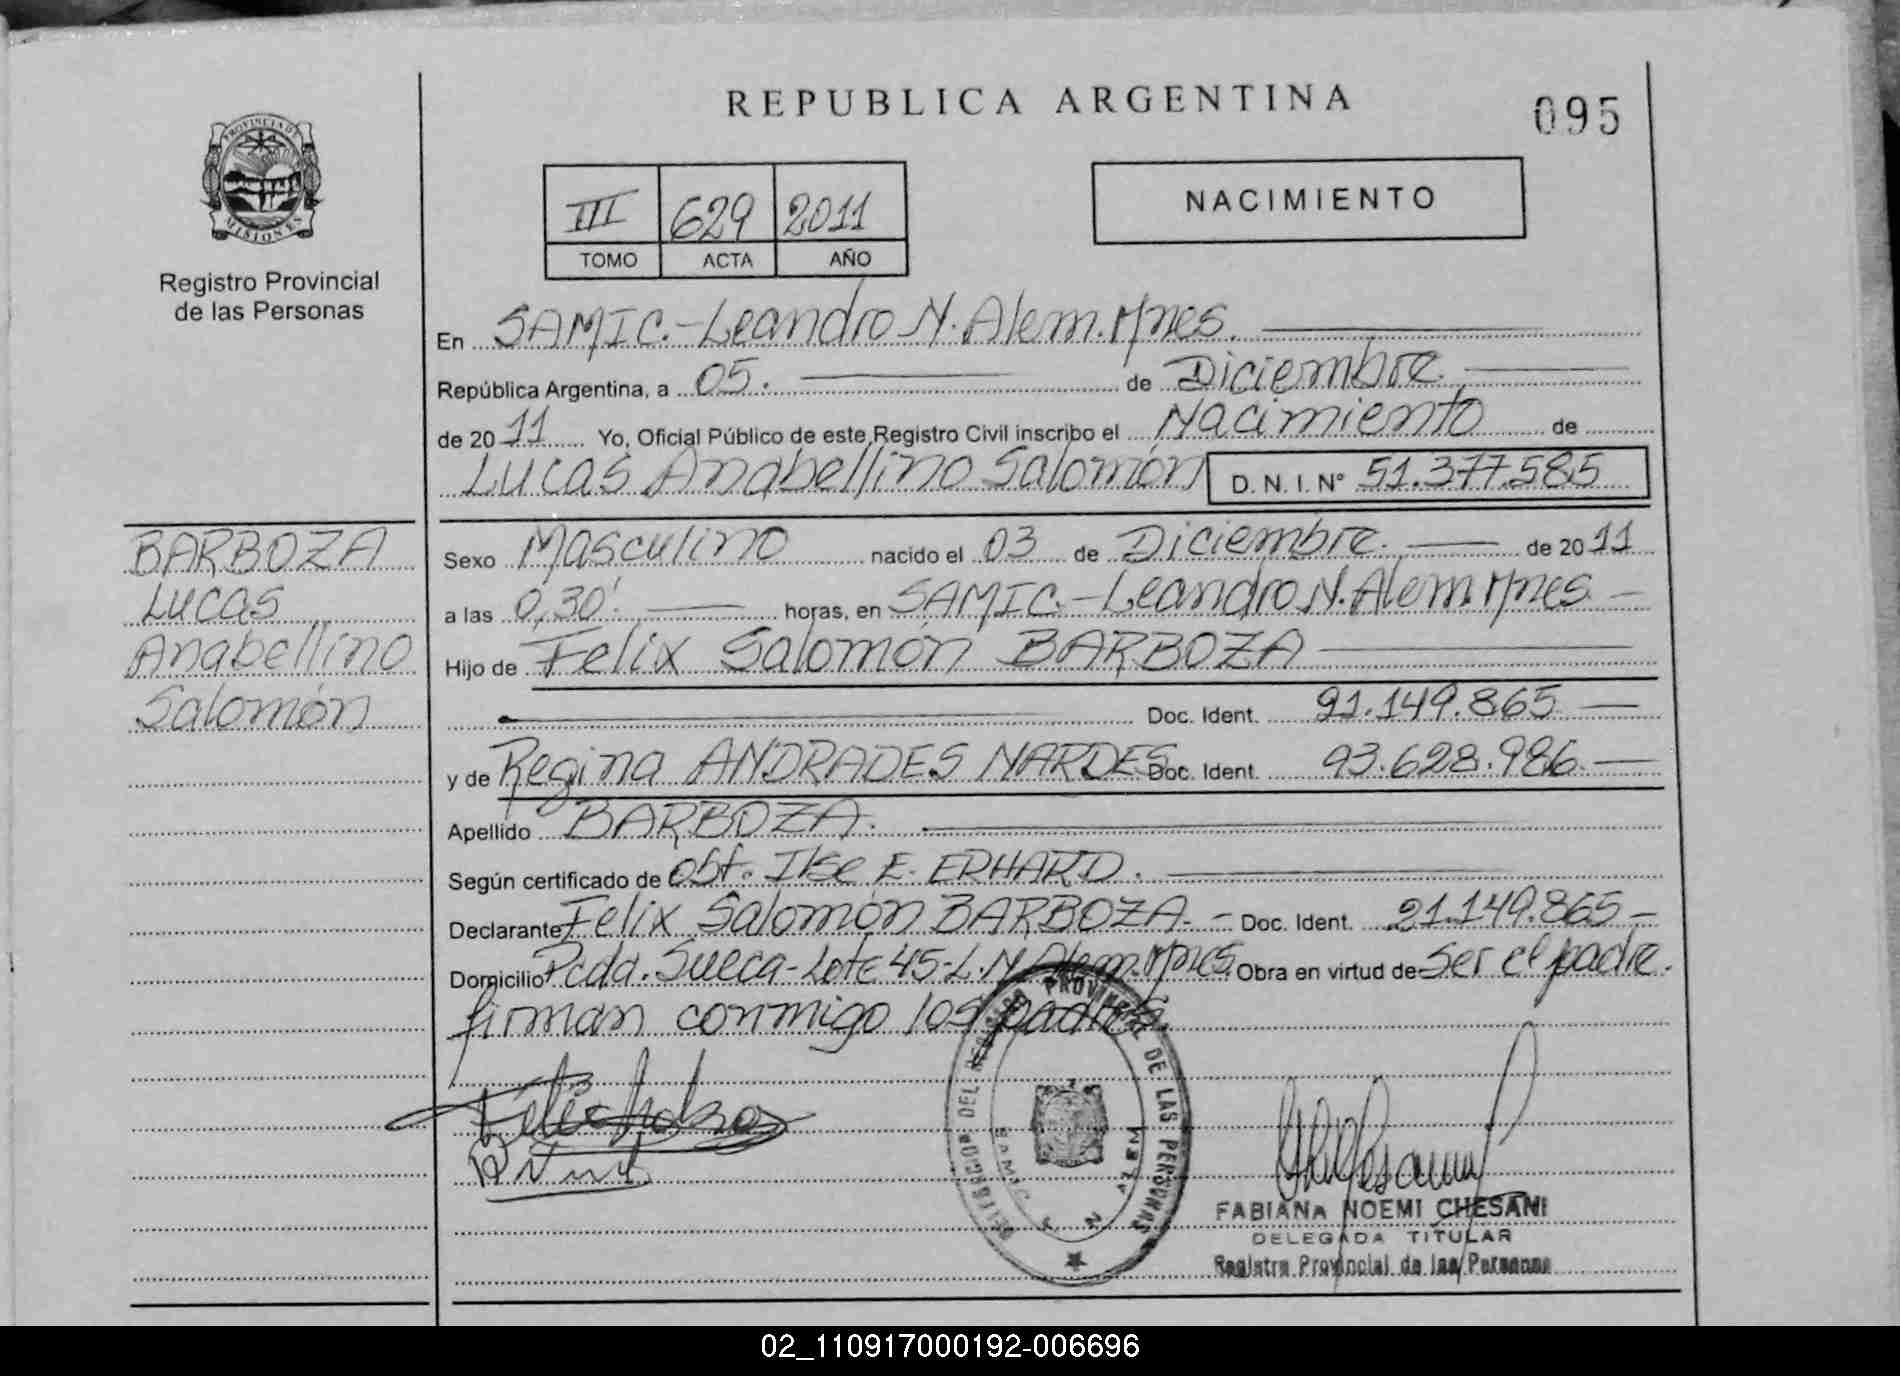 REPUBLICA ARGENTINA
095
PROVINCIA DE
MISIONES
Registro Provincial
de las Personas
III 629 2011
TOMO ACTA AÑO
NACIMIENTO
En SAMIC.-Leandro N. Alem. Mnes.
República Argentina, a 05. de Diciembre.
de 2011 Yo, Oficial Público de este Registro Civil inscribo el Nacimiento de
Lucas Anabellino Salomón D. N. I. N° 51.377.585
BARBOZA
Lucas
Anabellino
Salomón
Sexo Masculino nacido el 03 de Diciembre. de 2011
a las 0,30'. horas, en SAMIC.-Leandro N. Alem. Mnes
Hijo de Felix Salomón BARBOZA
Doc. Ident. 21.149.865
y de Regina ANDRADES NARDES Doc. Ident. 93.628.986.
Apellido BARBOZA.
Según certificado de Obst. Ilse E. ERHARD.
Declarante Felix Salomón BARBOZA. - Doc. Ident. 21.149.865
Domicilio Pcda. Sueca-Lote 45-L. N. Alem. Mnes. Obra en virtud de Ser el padre.
firman conmigo los padres.
PROVINCIAL DE LAS PERSONAS
SAMIC
FABIANA NOEMI CHESANI
DELEGADA TITULAR
Registro Provincial de las Personas
02_110917000192-006696